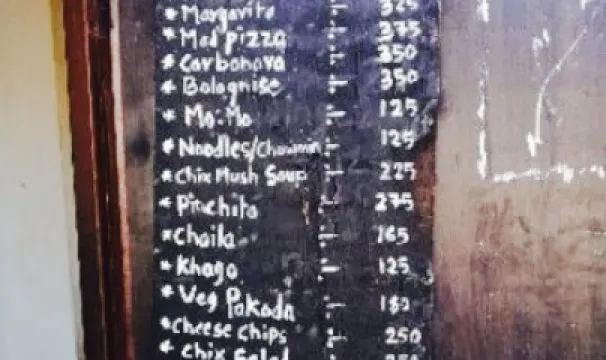 * Margarita :- 325
* Mad pizza :- 375
* Carbonara :- 350
* Bolagnise :- 350
* Mo:Mo :- 125
* Noodles/Chowmin :- 125
* Chix Mush Soup :- 225
* Pinchito :- 275
* Choila :- 165
* Khaga :- 125
* Veg Pakada :- 180
* Cheese Chips :- 250
* Chix Salad